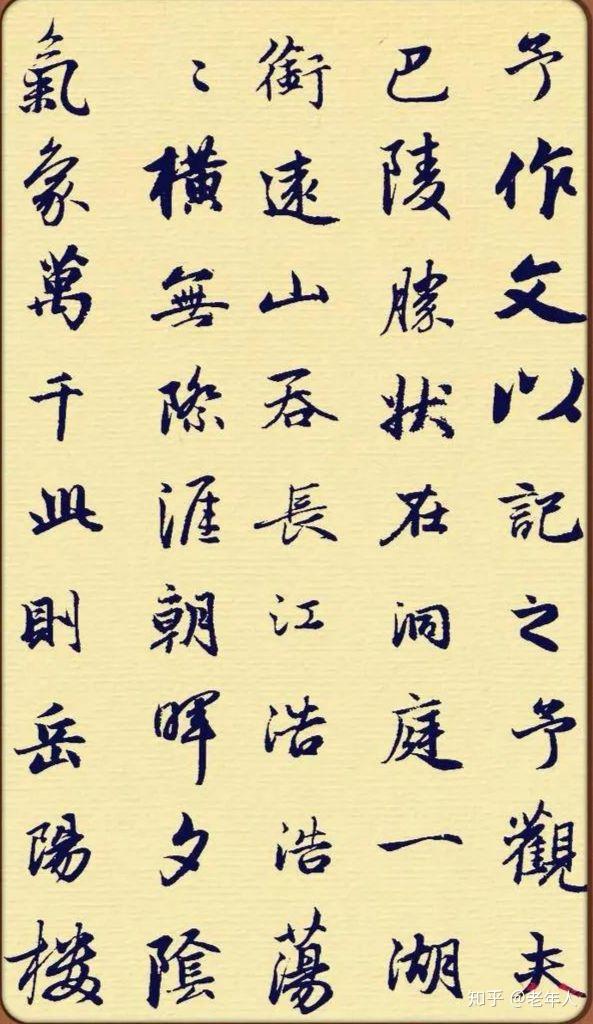 予作文以記之予觀夫
巴陵勝狀在洞庭一湖
銜遠山吞長江浩浩蕩
〻橫無際涯朝暉夕陰
氣象萬千此則岳陽楼
知乎 @老年人